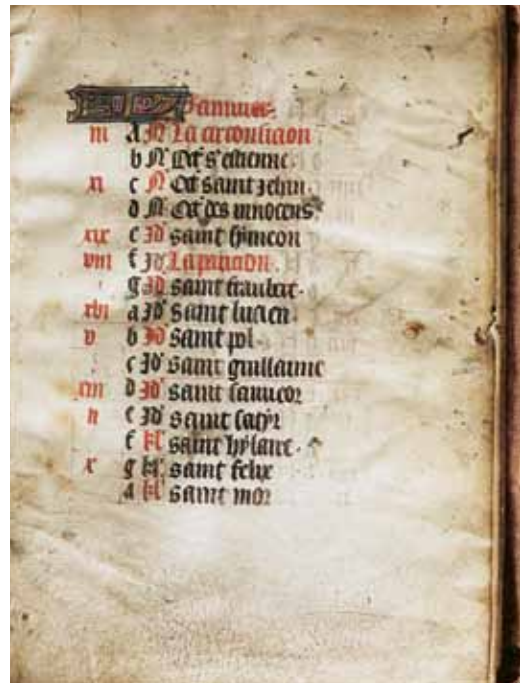 Januier
iii a N La circonsicion
b N Oct s' estienne
xi c N Oct saint Jehan
d N Oct des innocens
xix e Id saint symeon
viii f Id
g Id saint fraubert
xvi a Id saint lucien
v b Id saint pol
c Id saint guillaume
xiii d Id saint sauueor
ii e Id saint satyr
f kl' saint hylaire
x g kl' saint felix
a kl' saint mor